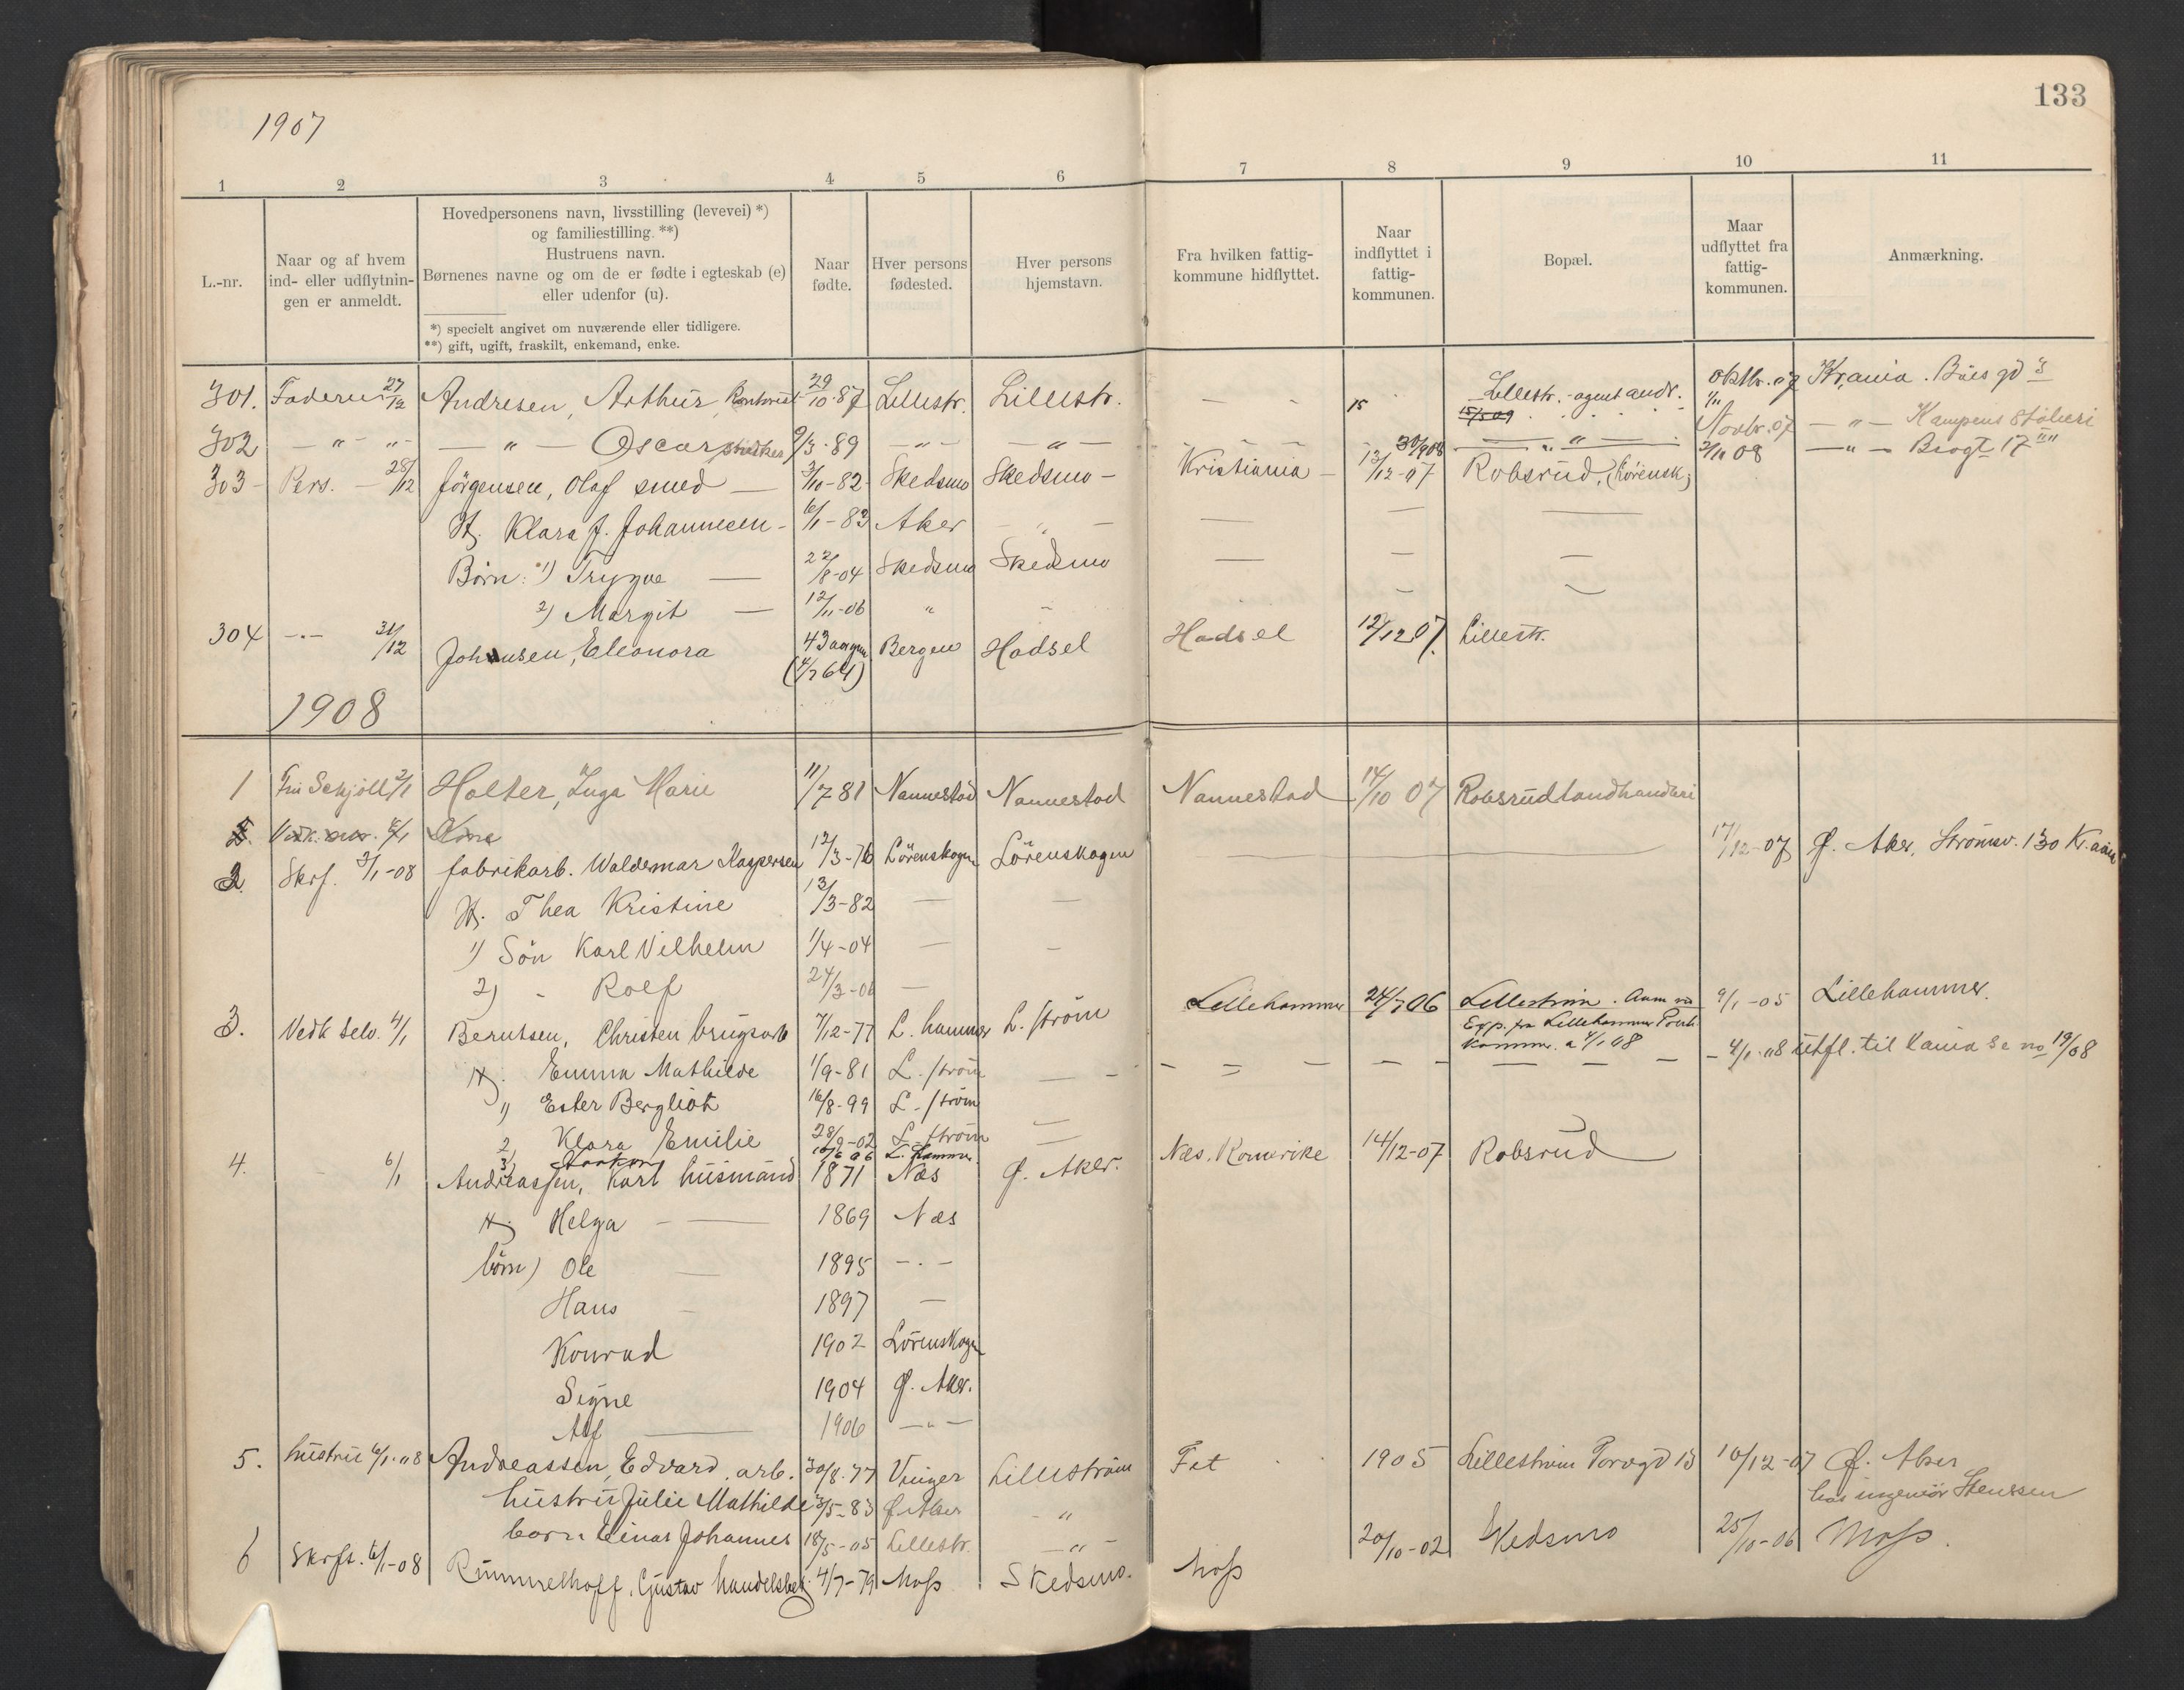 133
1907
1 2 3 4 5 6 7 8 9 10 11
L.-nr.
Naar og af hvem
ind- eller udflytnin-
gen er anmeldt.
Hovedpersonens navn, livsstilling (levevei) *)
og familiestilling. **)
Hustruens navn.
Børnenes navne og om de er fødte i egteskab (e)
eller udenfor (u).
*) specielt angivet om nuværende eller tidligere.
**) gift, ugift, fraskilt, enkemand, enke.
Naar
fødte.
Hver persons
fødested.
Hver persons
hjemstavn.
Fra hvilken fattig-
kommune hidflyttet.
Naar
indflyttet i
fattig-
kommunen.
Bopæl.
Maar
udflyttet fra
fattig-
kommunen.
Anmærkning.
301. Faderen 27/12 Andresen, Arthur 29/10-87 Lillestr. Lillestr. — - Lillestr. - agent andr. oktbr. 07 Kr,ania. Bües gd 3
15 15/5 09 1/11
302 — " — " — — " — Oscar 9/3-89 — " — — " — - - - — " — Novbr. 07 — " — Kampens
303 - Pers. — 28/12 Jörgensen, Olaf smed — 3/10-82 Skedsmo Skedsmo - Kristiania - 13/12-07 30/9 08 Robsrud, (Lörensk) 2/10 08 — " — Brogt. 17
H. Klara J. Johannesen - 6/1-83 Aker - " — — — —
Börn: 1) Trygve — 22/8-04 Skedsmo Skedsmo — — —
2) Margit — 12/11-06 " - - -
304 — " — 31/12 Johansen, Eleonora 43 aar gm Bergen Hadsel Hadsel 12/12 07. Lillestr.
(4/7 64)
1908
1 Fru Schjöll 2/1 Holter, Inga Marie 11/7 81 Nannestad Nannestad Nannestad 14/10 07 Robsrud landhandleri
2. Skrf. 3/1-08 fabrikarb. Waldemar Kaspersen 12/3-76 Lörenskogen Lörenskogen — 17/12-07 Ø. Aker, Strömsv. 130 Kr.ania
H. Thea Kristine 13/3-82 — —
1) Sön Karl Vilhelm 1/4-04 — —
2) - Rolf 24/3-06 —
3. Vedk selv. 4/1 Berntsen, Christen brugsarb 7/12-77 L. hammer L. ström Lillehammer 24/7 06 Lilleström. Anm via 9/1-05 Lillehammer.
Exp. fra Lillehammer
Komm. a 4/1 08
H. Emma Mathilde 1/9-81 L. ström — - - = - - - — - — - 4/1-08 utfl. til Kania se no 19/08
1) Ester Bergliot 16/8-99 L. ström
2, Klara Emilie 28/9-02 L. ström —
3) Haakon 10/6 06 L. hammer. —
4. 6/1 Andreassen, Karl husmand 1871 Næs Ø. Aker. Næs, Romerike 14/12-07 Robsrud
H. Helga — — 1869 Næs
börn) Ole — 1895 — " —
Hans - 1897 —
Konrad 1902 Lörenskogen
Signe 1904 Ø. Aker.
Alf — 1906 — " —
5. hustru 6/1-08 Andreassen, Edvard, arb. 30/8-77 Vinger Lilleström Fet 1905 Lilleström Torvgd 13 10/12-07 Ø. Aker
hustru Julie Mathilde 3/5-83 Ø Aker - " hos ingeniör Stenssen
barn Einar Johannes 18/5-05 Lillestr. — " -
6 Skrft. 6/1-08 Rummelhoff, Gustav handelsbetj. 4/7-79 Moss Skedsmo. Moss 20/10-02 Skedsmo 25/10-06 Moss.